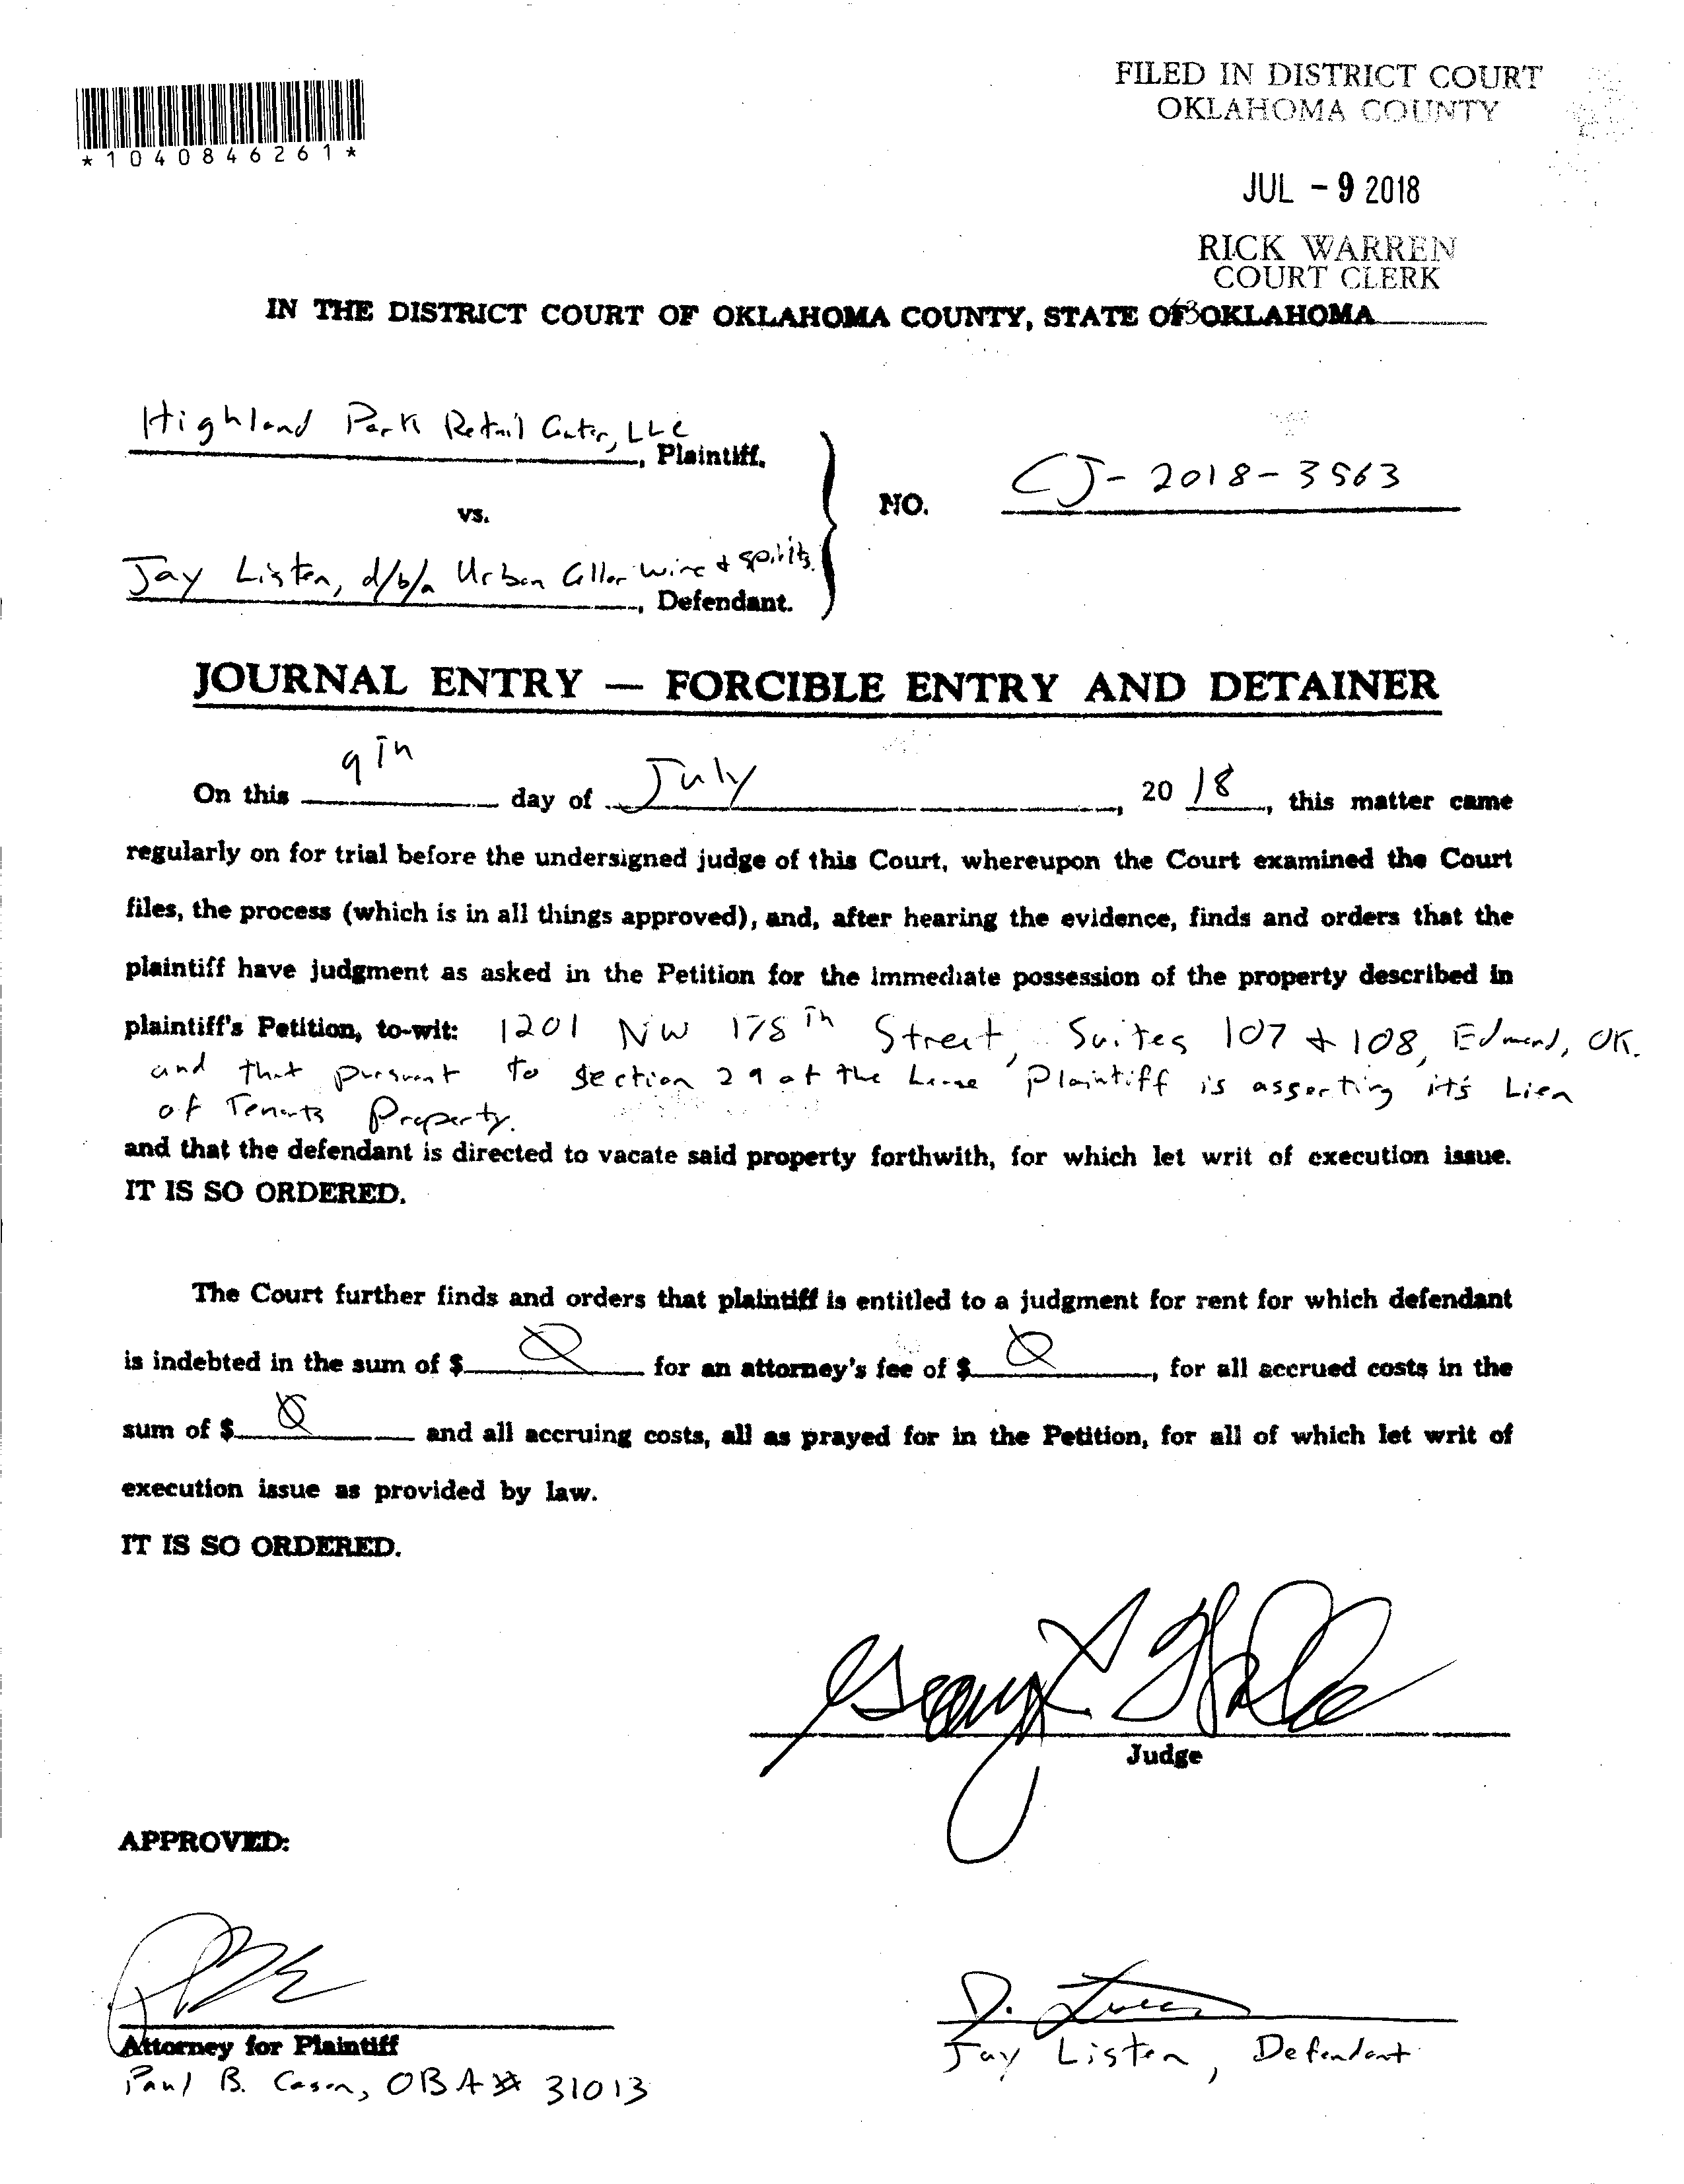 FILED IN DISTRICT COURT
OKLAHOMA COUNTY
*1040846261*
JUL - 9 2018
RICK WARREN
COURT CLERK
63
IN THE DISTRICT COURT OF OKLAHOMA COUNTY, STATE OF OKLAHOMA
Highland Park Retail Center, LLC
, Plaintiff,
vs.
NO. CJ-2018-3563
Jay Listen, d/b/a Urban Cellar Wine + Spirits.
, Defendant.
JOURNAL ENTRY — FORCIBLE ENTRY AND DETAINER
On this 9th day of July, 20 18, this matter came
regularly on for trial before the undersigned judge of this Court, whereupon the Court examined the Court
files, the process (which is in all things approved), and, after hearing the evidence, finds and orders that the
plaintiff have judgment as asked in the Petition for the immediate possession of the property described in
plaintiff's Petition, to-wit: 1201 NW 178th Street, Suites 107 + 108, Edmond, OK.
and that pursuant to Section 29 of the Lease Plaintiff is asserting it's Lien
of Tenants Property.
and that the defendant is directed to vacate said property forthwith, for which let writ of execution issue.
IT IS SO ORDERED.
The Court further finds and orders that plaintiff is entitled to a judgment for rent for which defendant
is indebted in the sum of $ Ø for an attorney's fee of $ Ø, for all accrued costs in the
sum of $ Ø and all accruing costs, all as prayed for in the Petition, for all of which let writ of
execution issue as provided by law.
IT IS SO ORDERED.
Judge
APPROVED:
Attorney for Plaintiff
Paul B. Cason, OBA# 31013
Jay Listen, Defendant